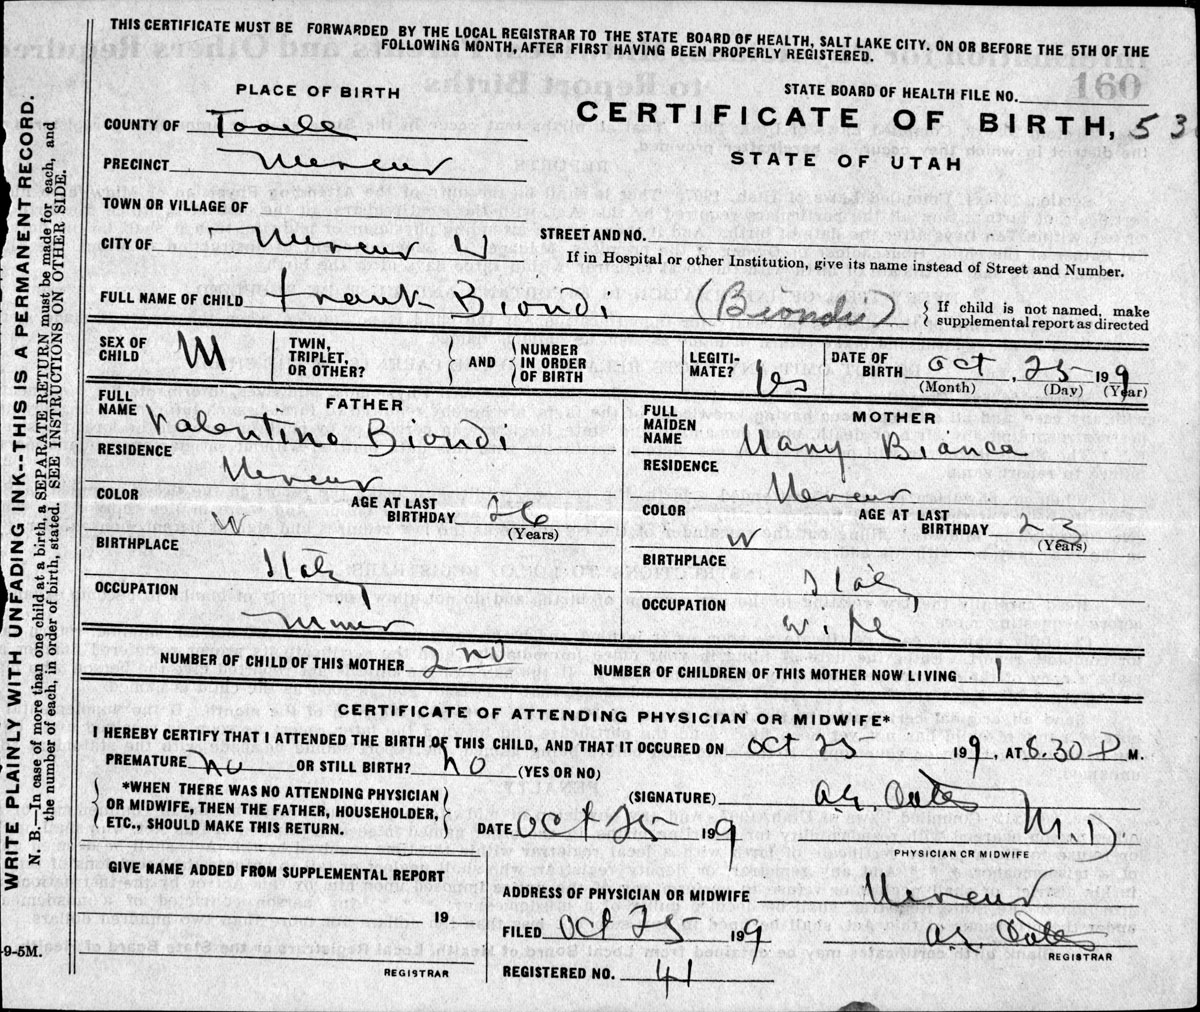 THIS CERTIFICATE MUST BE FORWARDED BY THE LOCAL REGISTRAR TO THE STATE BOARD OF HEALTH, SALT LAKE CITY, ON OR BEFORE THE 5TH OF THE
FOLLOWING MONTH, AFTER FIRST HAVING BEEN PROPERLY REGISTERED.
WRITE PLAINLY WITH UNFADING INK--THIS IS A PERMANENT RECORD.
N. B.—In case of more than one child at a birth, a SEPARATE RETURN must be made for each, and
the number of each, in order of birth, stated. SEE INSTRUCTIONS ON OTHER SIDE.
PLACE OF BIRTH
STATE BOARD OF HEALTH FILE NO. 160
COUNTY OF Tooele
CERTIFICATE OF BIRTH, 53
PRECINCT Mercur
STATE OF UTAH
TOWN OR VILLAGE OF
CITY OF Mercur U
STREET AND NO.
If in Hospital or other Institution, give its name instead of Street and Number.
FULL NAME OF CHILD Frank Biondi (Biondi)
If child is not named, make
supplemental report as directed
SEX OF CHILD M
TWIN, TRIPLET, OR OTHER?
AND
NUMBER IN ORDER OF BIRTH
LEGITI-MATE? Yes
DATE OF BIRTH Oct, 25 199
(Month) (Day) (Year)
FATHER
FULL NAME Valentino Biondi
RESIDENCE Mercur
COLOR W
AGE AT LAST BIRTHDAY 26
(Years)
BIRTHPLACE Italy
OCCUPATION Miner
MOTHER
FULL MAIDEN NAME Mary Bianca
RESIDENCE Mercur
COLOR W
AGE AT LAST BIRTHDAY 23
(Years)
BIRTHPLACE Italy
OCCUPATION Wife
NUMBER OF CHILD OF THIS MOTHER 2nd
NUMBER OF CHILDREN OF THIS MOTHER NOW LIVING 1
CERTIFICATE OF ATTENDING PHYSICIAN OR MIDWIFE*
I HEREBY CERTIFY THAT I ATTENDED THE BIRTH OF THIS CHILD, AND THAT IT OCCURED ON Oct 25 199, AT 8.30 P M.
PREMATURE No OR STILL BIRTH? No (YES OR NO)
*WHEN THERE WAS NO ATTENDING PHYSICIAN
OR MIDWIFE, THEN THE FATHER, HOUSEHOLDER,
ETC., SHOULD MAKE THIS RETURN.
(SIGNATURE)
DATE Oct 25 199
M.D
PHYSICIAN OR MIDWIFE
GIVE NAME ADDED FROM SUPPLEMENTAL REPORT
19
REGISTRAR
ADDRESS OF PHYSICIAN OR MIDWIFE Mercur
FILED Oct 25 199
REGISTRAR
REGISTERED NO. 41
-9-5M.